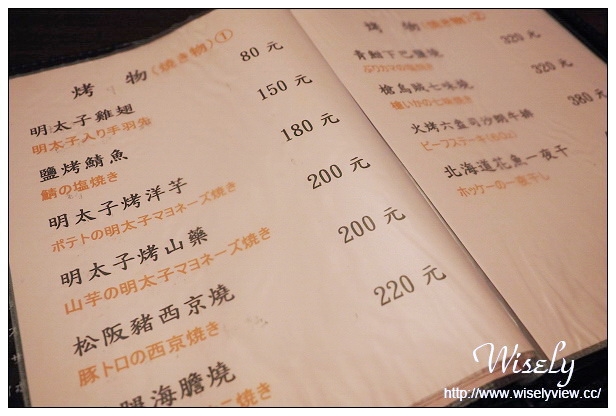 烤 物(焼き物)①
明太子雞翅 80 元
明太子入り手羽先
鹽烤鯖魚 150 元
鯖の塩焼き
明太子烤洋芋 180 元
ポテトの明太子マヨネーズ焼き
明太子烤山藥 200 元
山芋の明太子マヨネーズ焼き
松阪豬西京燒 200 元
豚トロの西京焼き
海膽燒 220 元
烤 物(焼き物)②
青魽下巴鹽燒 320 元
ぶりカマの塩焼き
槍烏賊七味燒 320 元
槍いかの七味焼き
火烤六盎司沙朗牛排 380 元
ビーフステーキ(6Oz)
北海道花魚一夜干
ホッケーの一夜干し
Wisely
http://www.wiselyview.cc/